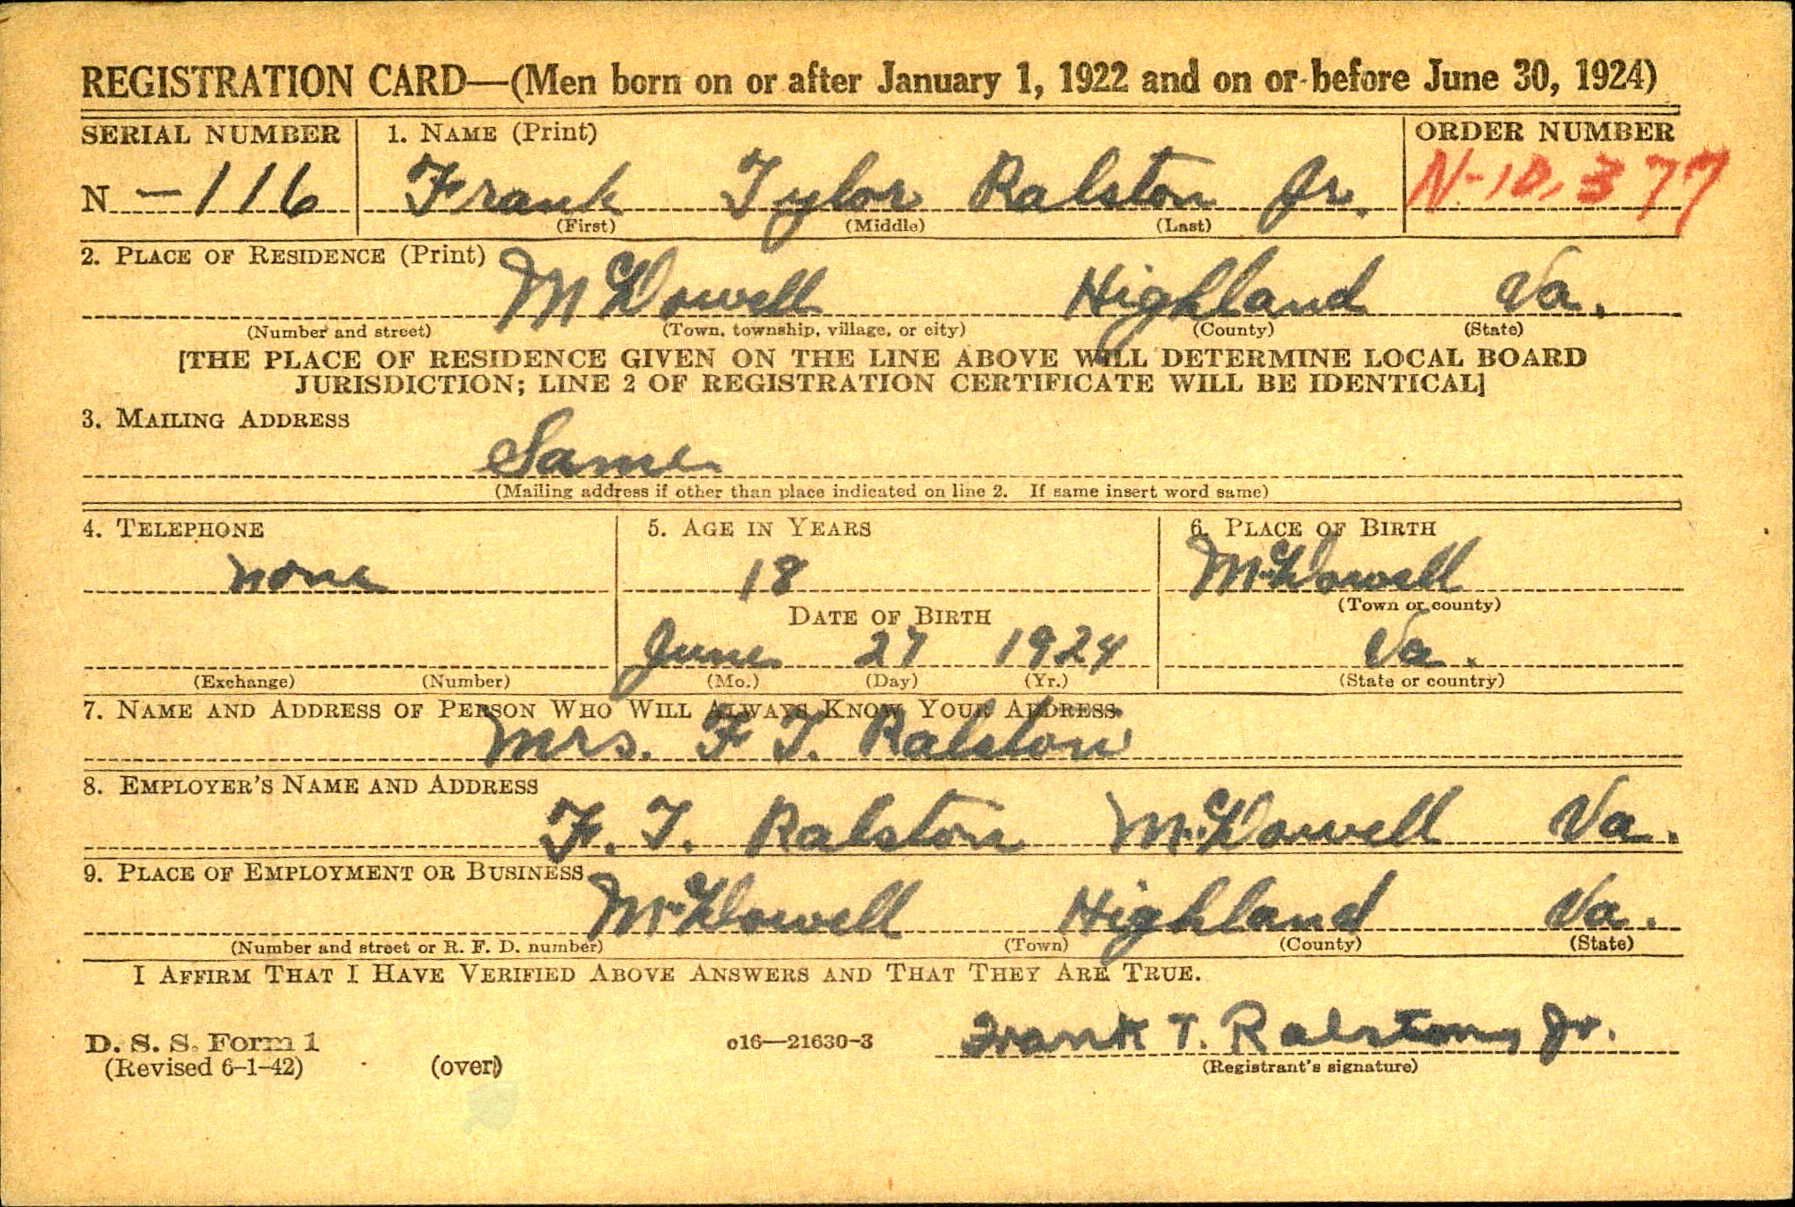 REGISTRATION CARD—(Men born on or after January 1, 1922 and on or before June 30, 1924)
SERIAL NUMBER 1. NAME (Print) ORDER NUMBER
N -116 Frank Tylor Ralston Jr. N-10,377
(First) (Middle) (Last)
2. PLACE OF RESIDENCE (Print)
McDowell Highland Va.
(Number and street) (Town, township, village, or city) (County) (State)
[THE PLACE OF RESIDENCE GIVEN ON THE LINE ABOVE WILL DETERMINE LOCAL BOARD
JURISDICTION; LINE 2 OF REGISTRATION CERTIFICATE WILL BE IDENTICAL]
3. MAILING ADDRESS
Same
(Mailing address if other than place indicated on line 2. If same insert word same)
4. TELEPHONE 5. AGE IN YEARS 6. PLACE OF BIRTH
none 18 McDowell
DATE OF BIRTH (Town or county)
June 27 1924 Va.
(Exchange) (Number) (Mo.) (Day) (Yr.) (State or country)
7. NAME AND ADDRESS OF PERSON WHO WILL ALWAYS KNOW YOUR ADDRESS
Mrs. F T. Ralston
8. EMPLOYER'S NAME AND ADDRESS
F. T. Ralston McDowell Va.
9. PLACE OF EMPLOYMENT OR BUSINESS
McDowell Highland Va.
(Number and street or R. F. D. number) (Town) (County) (State)
I AFFIRM THAT I HAVE VERIFIED ABOVE ANSWERS AND THAT THEY ARE TRUE.
D. S. S. Form 1 c16—21630-3 Frank T. Ralston, Jr.
(Revised 6-1-42) (over) (Registrant's signature)